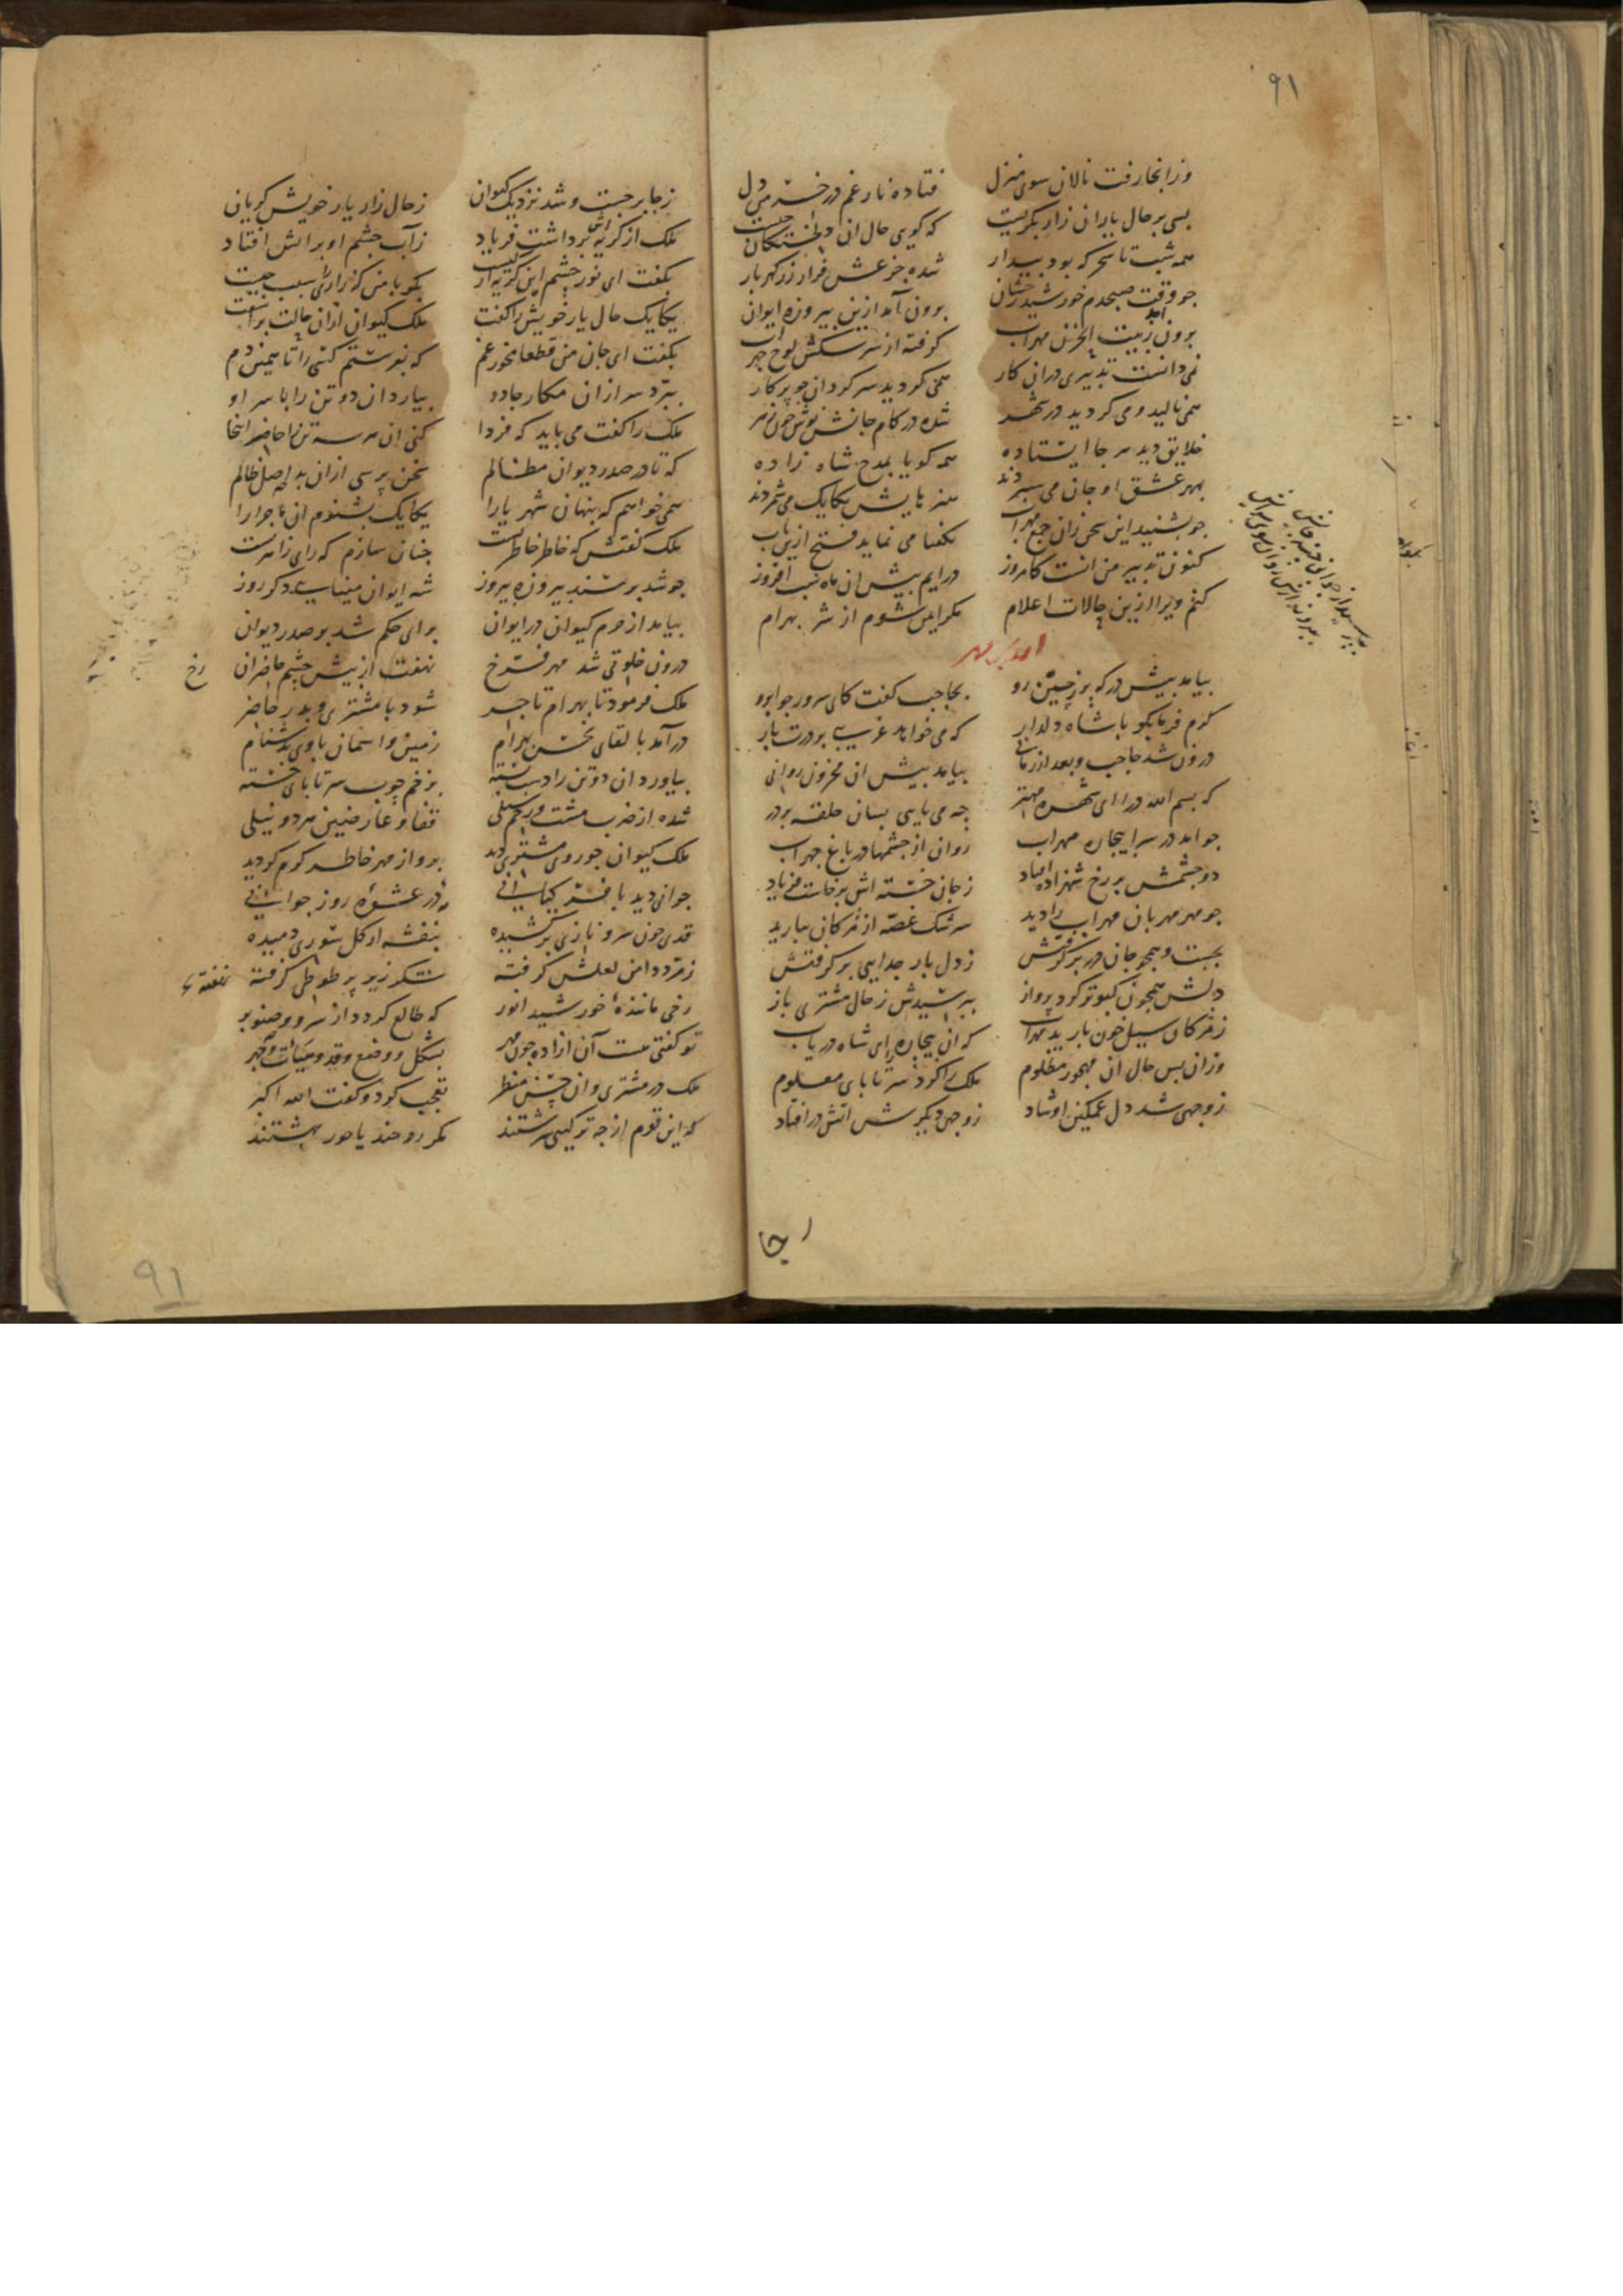 ۹۱
وزانجا رفت نالان سوی منزل
فتاده نار غم در خرمن دل
بسی بر حال یاران زار بکریست
که کویی حال ان دلخستکان چیست
همه شب تا سحر که بود بیدار
شده جزعش فراز زر کهربار
جو وقت صبحدم خورشید رخشان
برون آمد ازین بیروزه ایوان
برون آمد زبیت الحزن مهراب
کرفته از سرشکش لوح جهر آب
نمی دانست تدبیری دران کار
همی کردید سرکردان جو برکار
همی نالید و می کردید در شهر
شده در کام جانش نوش جون زهر
خلایق دید هر جا ایستاده
همه کویا بمدح شاه زاده
بهر عشق او جان می سبردند
هنرهایش یکایک می شمردند
جو بشنید این سخن زان جمع مهراب
بکفتا می نماید فتح ازین باب
کنون تدبیر من انست کامروز
درایم بیش ان ماه شب افروز
کنم ویرا ازین حالات اعلام
مکر ایمن شوم از شر بهرام
بیامد بیش درکه بوزجین رو
بحاجب کفت کای سرور جوابرو
کرم فرما بکو با شاه دلدار
که می خواهد غریبی بر درت بار
درون شد حاجب و بعد از زمانی
بیامد بیش ان محزون روانی
که بسم الله درا ای شهره مهتر
جه می بایی بسان حلقه بر در
جو امد در سرا بیجاره مهراب
روان از جشمها در باغ جهر آب
دو جشمش بر رخ شهزاده افتاد
زجان خسته اش برخاست فریاد
جو مهر مهربان مهراب را دید
سرشک غصه از مژکان ببارید
بجست و همجو جان در بر کرفتش
زدل بار جدایی بر کرفتش
دلش همجون کبوتر کرد پرواز
ببرسیدش زحال مشتری باز
زمژکان سیل خون بارید مهراب
که ان بیجاره را ای شاه دریاب
وزان بس حال ان مهجور مظلوم
ملک را کرد سر تا بای معلوم
زوجهی شد دل غمکین او شاد
زوجهی دیکرش اتش در افتاد
زجا بر جست و شد نزدیک کیوان
زحال زار یار خویش کریان
ملک از کریه اش برداشت فریاد
زآب جشم او بر اتش افتاد
بکفت ای نور جشم این کریه از کیست
بکو با من که زاری را سبب جیست
یکایک حال یار خویش را کفت
ملک کیوان ازان حالت براشفت
بکفت ای جان من قطعا مخور غم
که بفرستم کسی را تا همین دم
ببرد سر ازان مکار جادو
بیارد ان دو تن را با سر او
ملک را کفت می باید که فردا
کنی ان هر سه تن را حاضر اینجا
که تا در صدر دیوان مظالم
سخن برسی ازان بد اصل ظالم
همی خواهم که بنهان شهریارا
یکایک بشنوم ان ماجرا را
ملک کفتش که خاطر خاطر تست
جنان سازم که رای زاهرت
جو شد بر سند بیروزه بیروز
شه ایوان مینایی دکر روز
بیامد از حرم کیوان در ایوان
برای حکم شد بر صدر دیوان
درون خلوتی شد مهر فرخ
نهفت از بیش جشم حاضران رخ
ملک فرمود تا بهرام تاجر
شود با مشتری و بدر حاضر
درآمد با لقای نحس بهرام
زمین و اسمان با وی بدشنام
بیاورد ان دو تن را دست بسته
بزخم جوب سر تا بای خسته
شده از ضرب مشت و زخم سیلی
قفا و عارضین هر دو نیلی
ملک کیوان جو روی مشتری دید
برو از مهر خاطر کرم کردید
جوانی دید با فر کیانی
در عشوه روز جوانی
قدی جون سرو نازی برکشیده
بنفشه از کل سوری دمیده
زمرد دامن لعلش کرفته
شکر زیر پر طوطی کرفته
نهفته
رخی ماننده خورشید انور
که طالع کردد از سرو و صنوبر
تو کفتی هست آن ازاده جون مهر
بشکل و وضع و قد و هیات و جهر
ملک در مشتری و ان حسن منظر
تعجب کرد و کفت الله اکبر
که این قوم از جه ترکیبی سرشتند
مکر روحند یا حور بهشتند
۹۱